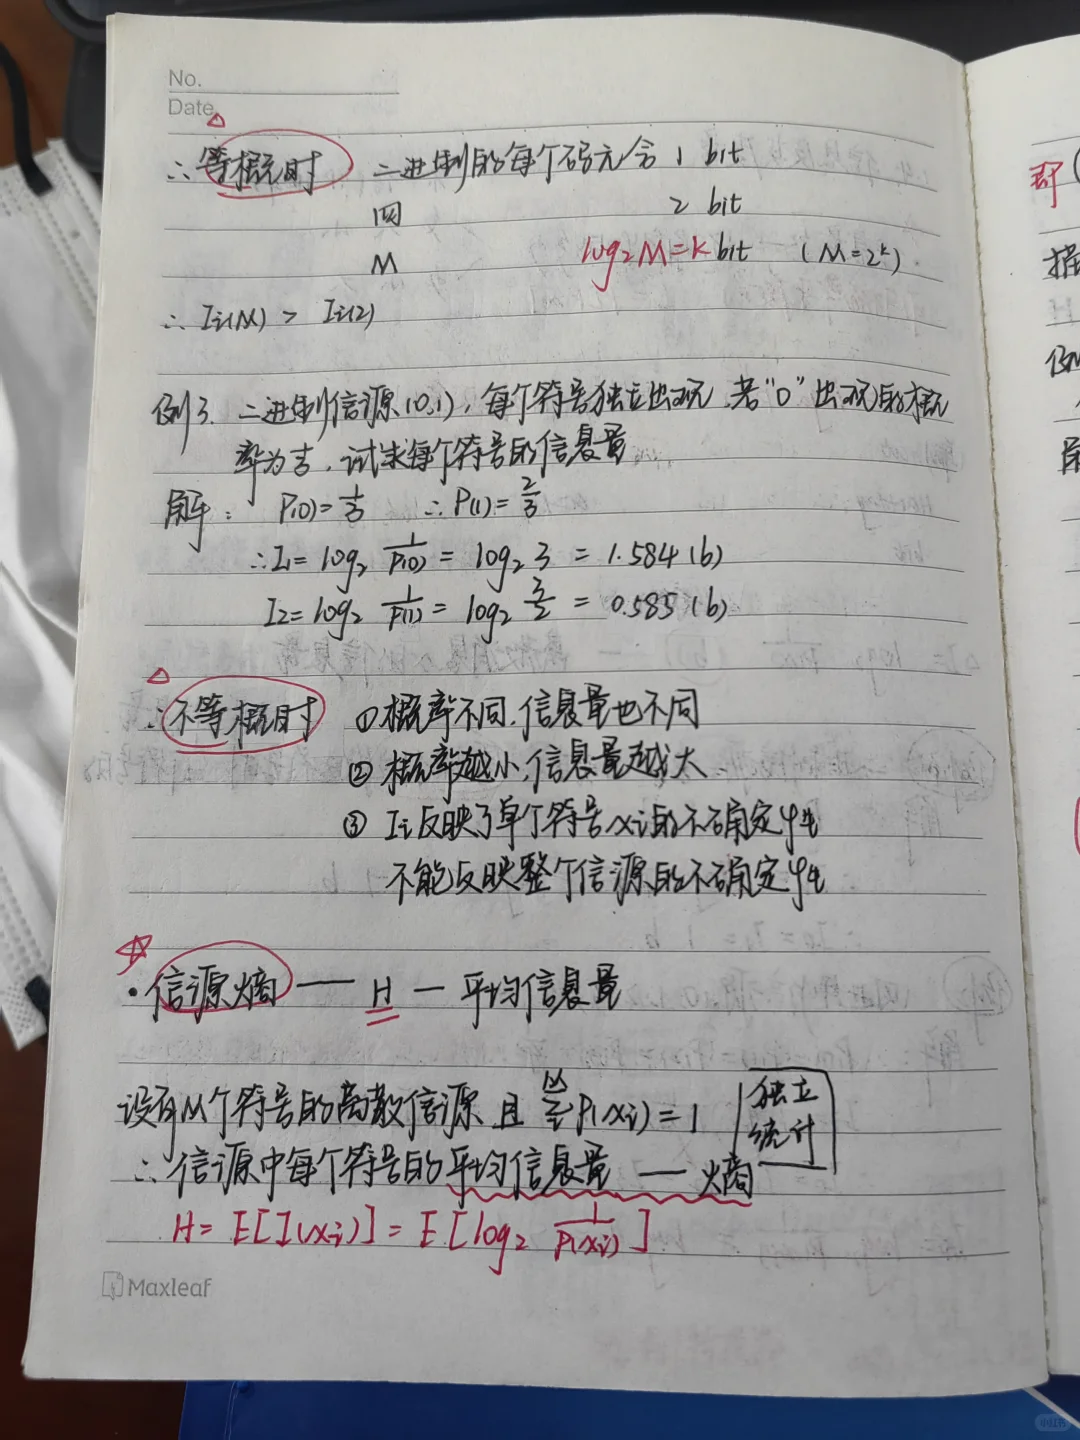 No.
Date
∴ 等概时 二进制的每个码元含 1 bit
四 2 bit
M log₂M=k bit (M=2ᵏ)
∴ Ii(M) > Ii(2)
例3. 二进制信源(0,1), 每个符号独立出现, 若“0”出现的概
率为⅓, 试求每个符号的信息量
解: P(0)=1/3 ∴P(1)=2/3
∴I₁= log₂ 1/P(0) = log₂ 3 = 1.584 (b)
I₂= log₂ 1/P(1) = log₂ 3/2 = 0.585 (b)
∴ 不等概时 ① 概率不同, 信息量也不同
② 概率越小, 信息量越大
③ Ii 反映了单个符号xi的不确定性
不能反映整个信源的不确定性
• 信源熵 —— H — 平均信息量
设有M个符号的离散信源 且 M∑i P(xi)=1 独立
统计
∴ 信源中每个符号的平均信息量 —— 熵
H= E[I(xi)] = E[log₂ 1/P(xi)]
Maxleaf
即
描
例
解
小红书